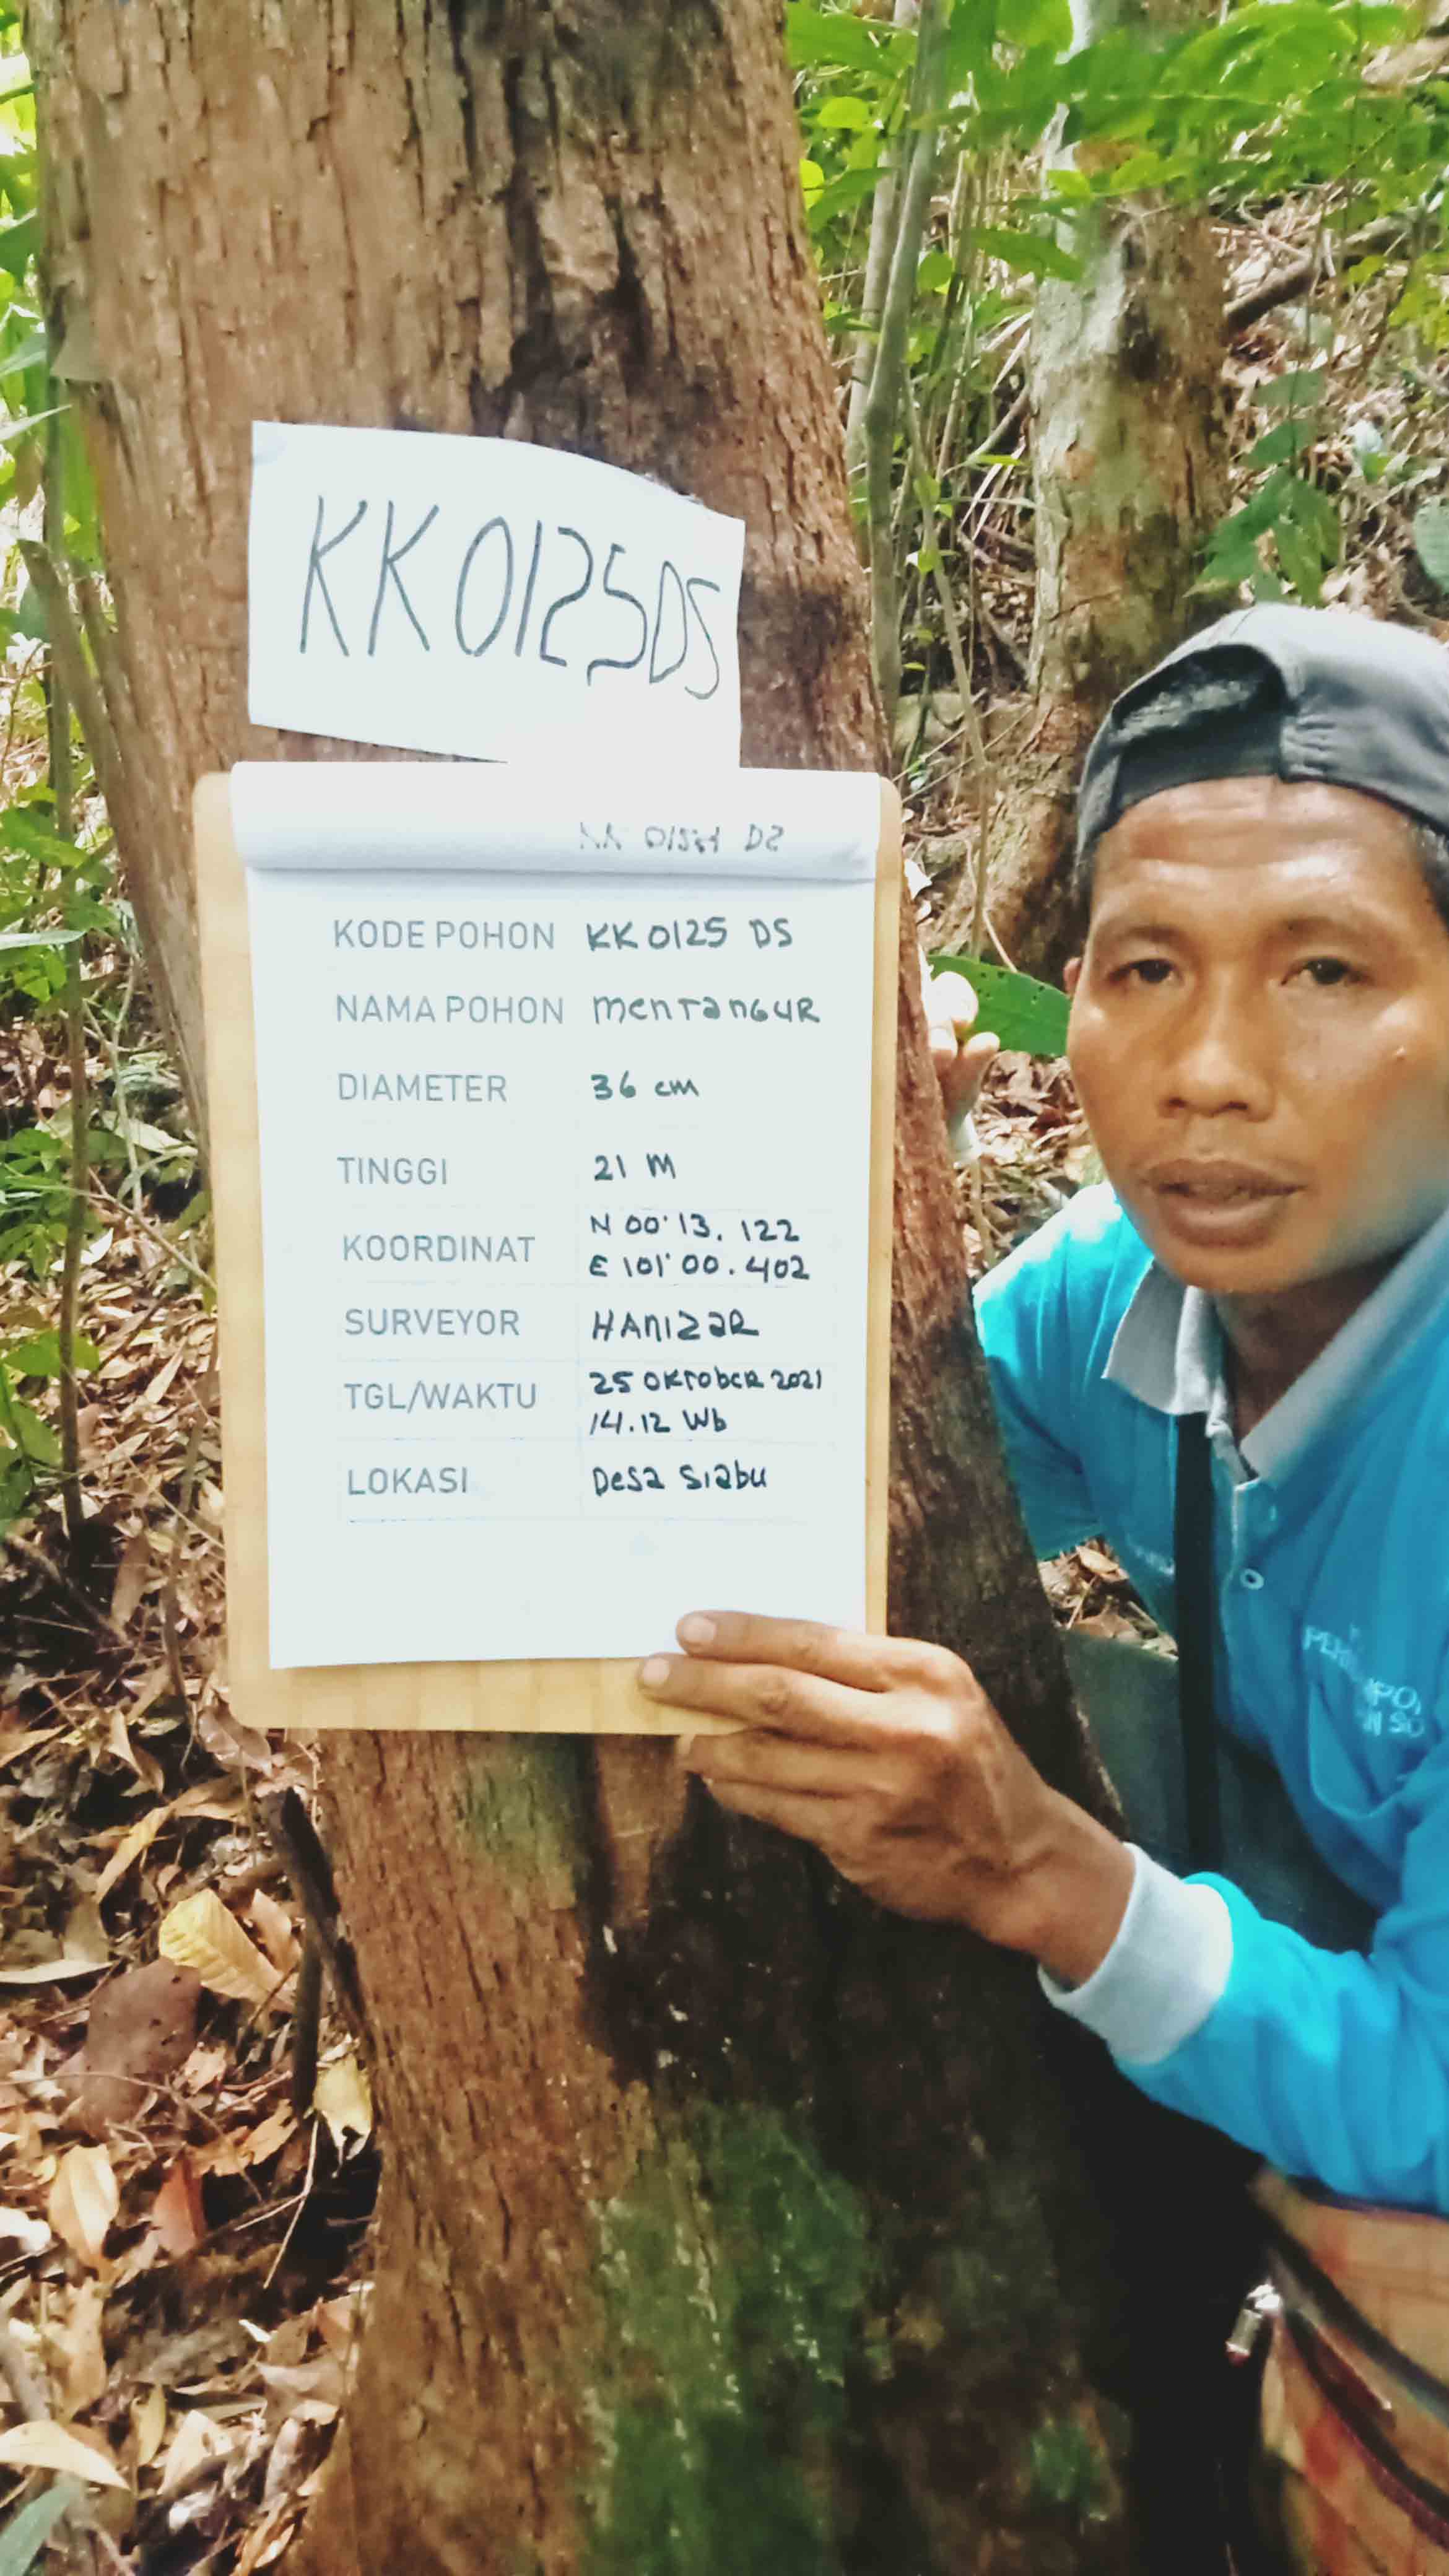 KK0125DS
KODE POHON KK 0125 DS
NAMA POHON menTanGuR
DIAMETER 36 cm
TINGGI 21 M
KOORDINAT N 00' 13. 122
E 101' 00. 402
SURVEYOR HAnIZaR
TGL/WAKTU 25 OKTobeR 2021
14.12 Wb
LOKASI Desa Siabu